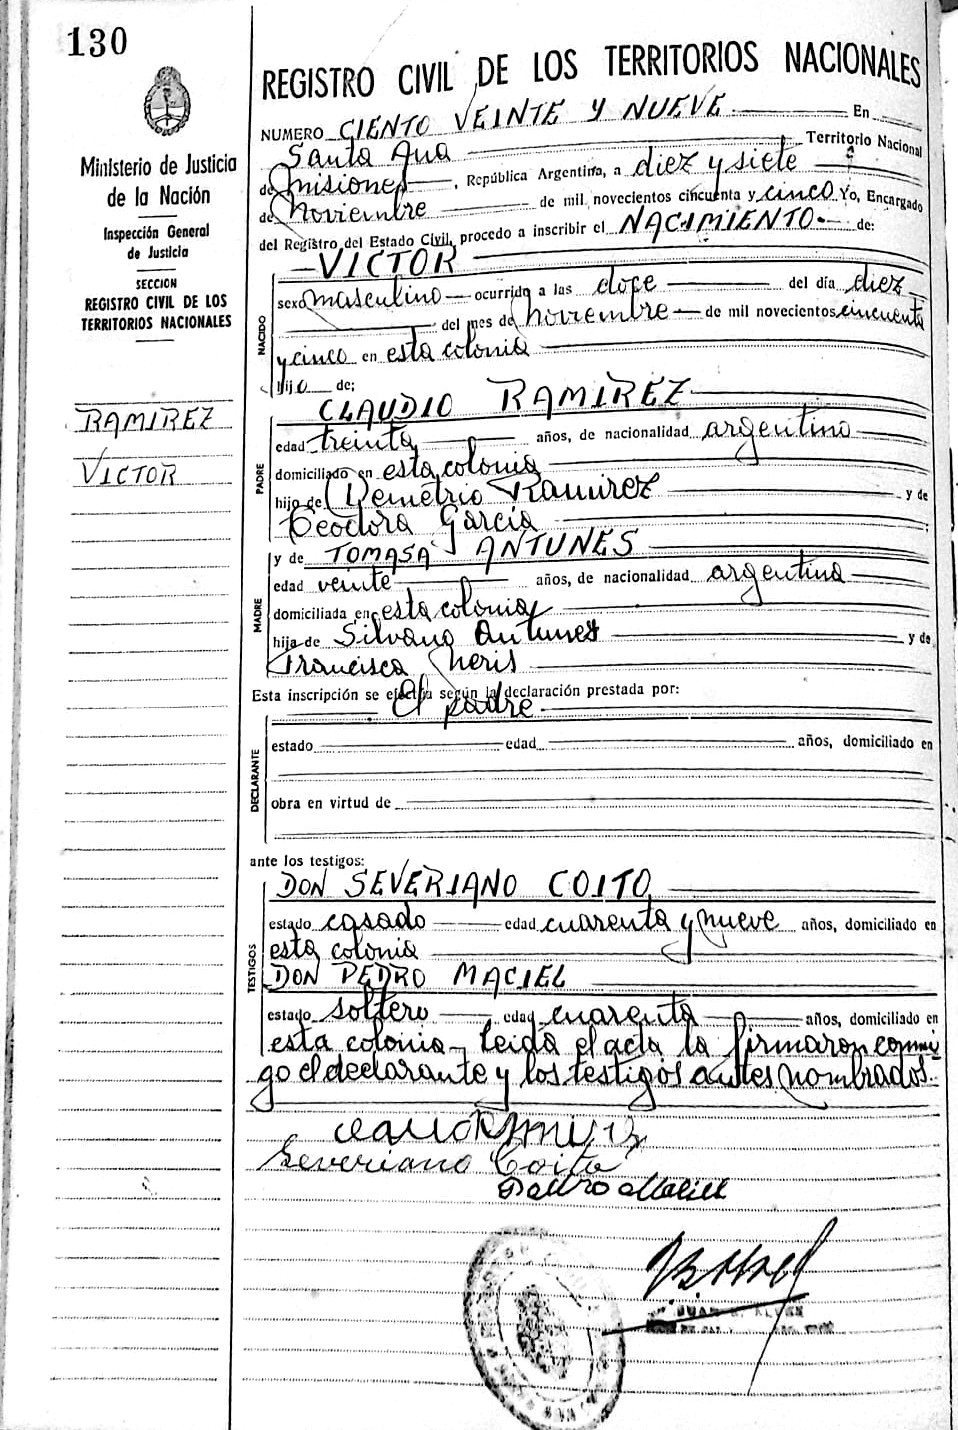 130
Ministerio de Justicia
de la Nación
Inspección General
de Justicia
SECCION
REGISTRO CIVIL DE LOS
TERRITORIOS NACIONALES
RAMIREZ
VICTOR
REGISTRO CIVIL DE LOS TERRITORIOS NACIONALES
NUMERO CIENTO VEINTE Y NUEVE En
Santa Ana Territorio Nacional
de Misiones, República Argentina, a diez y siete
de Noviembre de mil novecientos cincuenta y cinco Yo, Encargado
del Registro del Estado Civil, procedo a inscribir el NACIMIENTO de:
VICTOR
NACIDO
sexo masculino ocurrido a las doce del día diez
del mes de noviembre de mil novecientos cincuenta
y cinco en esta colonia
hijo de;
CLAUDIO RAMIREZ
PADRE
edad treinta años, de nacionalidad argentino
domiciliado en esta colonia
hijo de Demétrio Ramirez y de
Teodora Garcia
y de TOMASA ANTUNES
MADRE
edad veinte años, de nacionalidad argentina
domiciliada en esta colonia
hija de Silvano Antunes y de
Francisca Neris
Esta inscripción se efectúa según la declaración prestada por:
El padre
DECLARANTE
estado edad años, domiciliado en
obra en virtud de
ante los testigos:
DON SEVERIANO COITO
TESTIGOS
estado casado edad cuarenta y nueve años, domiciliado en
esta colonia
DON PEDRO MACIEL
estado soltero edad cuarenta años, domiciliado en
esta colonia - Leida el acta la firmaron conmi
go el declarante y los testigos antes nombrados.
Severiano Coito
Pedro Maciel
JUAN